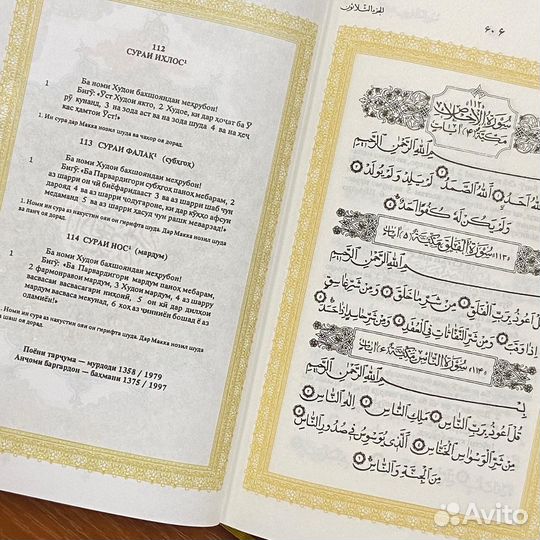 112
СУРАИ ИХЛОС¹
Ба номи Худои бахшояндаи меҳрубон!
1 Бигӯ: «Ӯст Худои якто, 2 Худое, ки дар ҳоҷат ба Ӯ
рӯ кунанд, 3 на зода аст ва на зода шуда 4 ва на ҳеҷ
кас ҳамтои Ӯст!»
1. Ин сура дар Макка нозил шуда ва чаҳор оя дорад.
113 СУРАИ ФАЛАҚ¹ (субҳгоҳ)
Ба номи Худои бахшояндаи меҳрубон!
1 Бигӯ: «Ба Парвардигори субҳгоҳ паноҳ мебарам, 2
аз шарри он чӣ биёфаридааст 3 ва аз шарри шаб чун
дарояд 4 ва аз шарри ҷодугароне, ки дар кӯҳҳо афсун
медаманд 5 ва аз шарри ҳасуд чун рашк меварзад!»
1. Номи ин сура аз нахустин ояи он гирифта шуда. Дар Макка нозил шуда
ва панҷ оя дорад.
114 СУРАИ НОС¹ (мардум)
Ба номи Худои бахшояндаи меҳрубон!
1 Бигӯ: «Ба Парвардигори мардум паноҳ мебарам,
2 фармонравои мардум, 3 Худои мардум, 4 аз шарри
васвасаи васвасагари ниҳонӣ, 5 он кӣ дар дилҳои
мардум васваса мекунад, 6 хоҳ аз ҷинниён бошад ё аз
одамиён!»
1. Номи ин сура аз нахустин ояи он гирифта шуда. Дар Макка нозил шуда
ва шаш оя дорад.
Поёни тарҷума — мурдоди 1358 / 1979
Анҷоми баргардон — баҳмани 1375 / 1997
الجزء الثلاثون
٦٠٦
١١٢ سُورَةُ الإِخْلَاصِ
مَكِّيَّة (٤) آيَات
بِسْمِ اللَّهِ الرَّحْمَٰنِ الرَّحِيمِ
قُلْ هُوَ اللَّهُ أَحَدٌ ١ اللَّهُ الصَّمَدُ ٢ لَمْ يَلِدْ وَلَمْ يُولَدْ ٣
وَلَمْ يَكُنْ لَهُ كُفُوًا أَحَدٌ ٤
١١٣ سُورَةُ الْفَلَقِ مَكِّيَّة (٥) آيَات
بِسْمِ اللَّهِ الرَّحْمَٰنِ الرَّحِيمِ
قُلْ أَعُوذُ بِرَبِّ الْفَلَقِ ١ مِنْ شَرِّ مَا خَلَقَ ٢ وَمِنْ شَرِّ غَاسِقٍ
إِذَا وَقَبَ ٣ وَمِنْ شَرِّ النَّفَّاثَاتِ فِي الْعُقَدِ ٤ وَمِنْ شَرِّ حَاسِدٍ إِذَا حَسَدَ ٥
١١٤ سُورَةُ النَّاسِ مَكِّيَّة (٦) آيَات
بِسْمِ اللَّهِ الرَّحْمَٰنِ الرَّحِيمِ
قُلْ أَعُوذُ بِرَبِّ النَّاسِ ١ مَلِكِ النَّاسِ ٢ إِلَٰهِ النَّاسِ ٣
مِنْ شَرِّ الْوَسْوَاسِ الْخَنَّاسِ ٤ الَّذِي يُوَسْوِسُ فِي صُدُورِ النَّاسِ ٥
مِنَ الْجِنَّةِ وَالنَّاسِ ٦
Avito